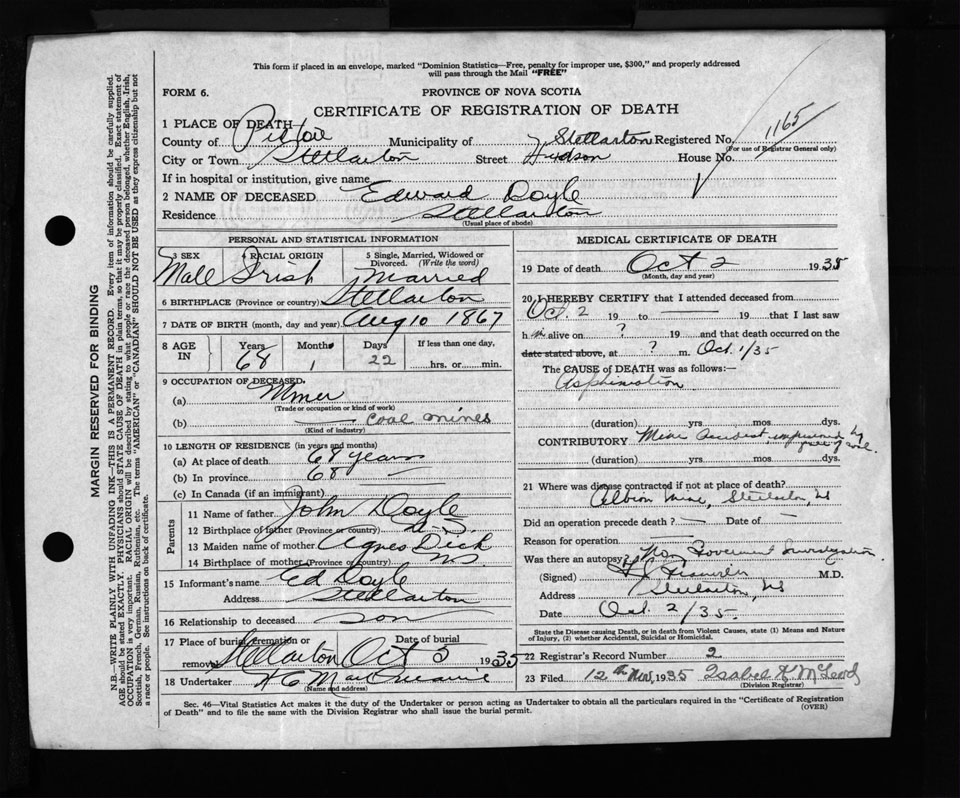 This form if placed in an envelope, marked "Dominion Statistics—Free, penalty for improper use, $300," and properly addressed
will pass through the Mail "FREE"
FORM 6.
PROVINCE OF NOVA SCOTIA
CERTIFICATE OF REGISTRATION OF DEATH
1 PLACE OF DEATH
County of Pictou Municipality of Stellarton Registered No. 1165
(For use of Registrar General only)
City or Town Stellarton Street Hudson House No.
If in hospital or institution, give name
2 NAME OF DECEASED Edward Doyle
Residence Stellarton
(Usual place of abode)
PERSONAL AND STATISTICAL INFORMATION
3 SEX 4 RACIAL ORIGIN 5 Single, Married, Widowed or Divorced. (Write the word)
Male Irish Married
6 BIRTHPLACE (Province or country) Stellarton
7 DATE OF BIRTH (month, day and year) Aug 10 1867
8 AGE IN Years Months Days If less than one day,
68 1 22 hrs. or min.
9 OCCUPATION OF DECEASED.
(a) Miner
(Trade or occupation or kind of work)
(b) — coal mines
(Kind of industry)
10 LENGTH OF RESIDENCE (in years and months)
(a) At place of death 68 years
(b) In province 68 —
(c) In Canada (if an immigrant)
Parents
11 Name of father John Doyle
12 Birthplace of father (Province or country) N.S.
13 Maiden name of mother Agnes Dick
14 Birthplace of mother (Province or country) N.S.
15 Informant's name Ed Doyle
Address Stellarton
16 Relationship to deceased son
17 Place of burial, cremation or removal Date of burial
Stellarton Oct 5 1935
18 Undertaker
(Name and address)
MEDICAL CERTIFICATE OF DEATH
19 Date of death Oct 2 1935
(Month, day and year)
20 I HEREBY CERTIFY that I attended deceased from
Oct. 2 19 to — 19 that I last saw
h im alive on ? 19 and that death occurred on the
date stated above, at ? m. Oct 1/35
The CAUSE of DEATH was as follows:—
Asphixiation
(duration) yrs. mos. dys.
CONTRIBUTORY Mine accident, by
(duration) yrs. mos. dys.
21 Where was disease contracted if not at place of death?
Albion Mine, Stellarton, NS
Did an operation precede death? — Date of —
Reason for operation —
Was there an autopsy? Government Investigation.
(Signed) M.D.
Address Stellarton, NS
Date Oct. 2/35.
State the Disease causing Death, or in death from Violent Causes, state (1) Means and Nature
of Injury, (2) whether Accidental, Suicidal or Homicidal.
22 Registrar's Record Number 2
23 Filed 12th Nov, 1935 Isabel McLeod
(Division Registrar)
Sec. 46—Vital Statistics Act makes it the duty of the Undertaker or person acting as Undertaker to obtain all the particulars required in the "Certificate of Registration
of Death" and to file the same with the Division Registrar who shall issue the burial permit.
(OVER)
MARGIN RESERVED FOR BINDING
N.B.—WRITE PLAINLY WITH UNFADING INK—THIS IS A PERMANENT RECORD. Every item of information should be carefully supplied.
AGE should be stated EXACTLY. PHYSICIANS should STATE CAUSE OF DEATH in plain terms, so that it may be properly classified. Exact statement of
OCCUPATION is very important. RACIAL ORIGIN will be described by stating to what people or race the deceased person belonged, whether English, Irish,
Scottish, French, German, Russian, Ruthenian, etc. The terms "AMERICAN" or "CANADIAN" SHOULD NOT BE USED as they express citizenship but not
a race or people. See instructions on back of certificate.